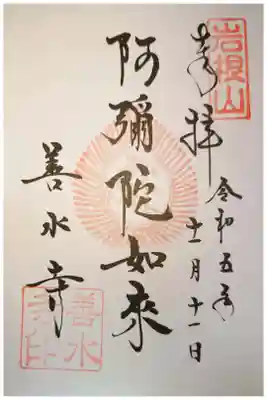 岩根山
奉拝
令和五年
十一月十一日
阿彌陀如來
善水寺
善水寺印